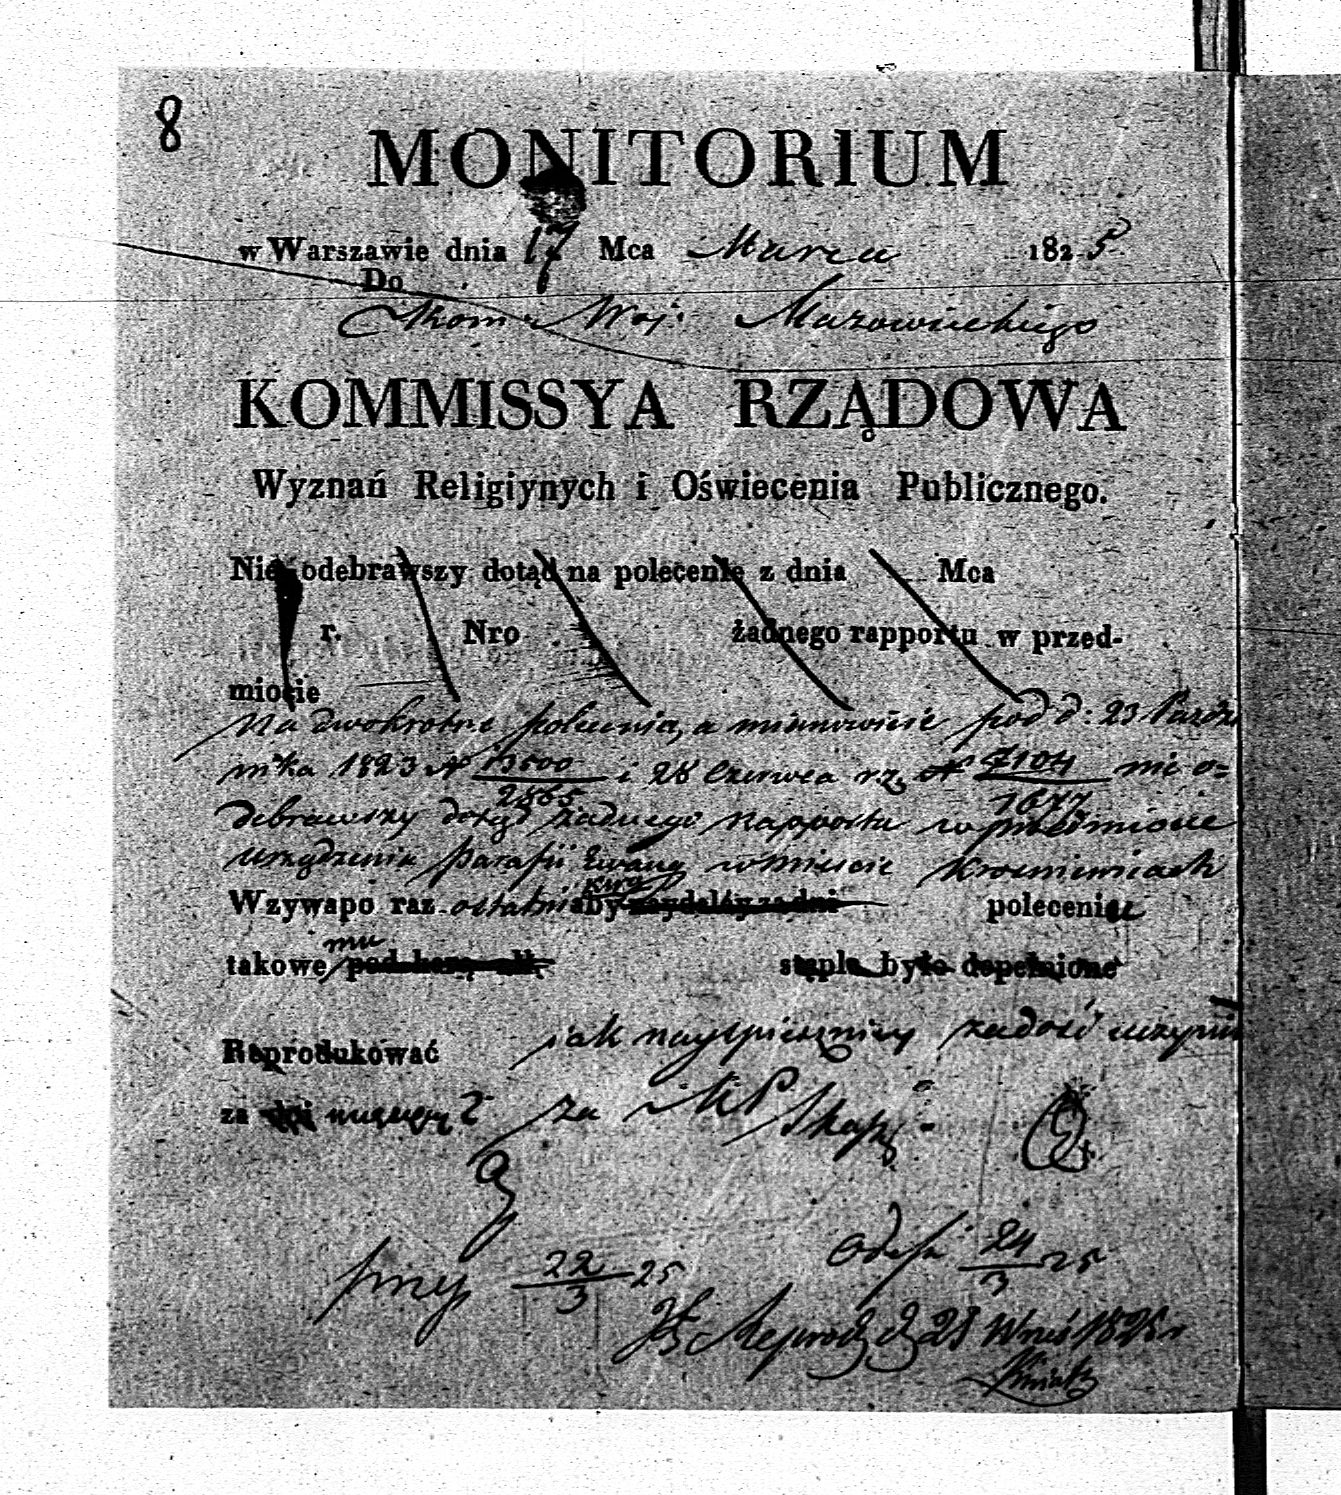 8
MONITORIUM
w Warszawie dnia 17 Mca Marca 1825
Do
Kom: Woj: Mazowieckiego
KOMMISSYA RZĄDOWA
Wyznań Religiynych i Oświecenia Publicznego.
Nie odebrawszy dotąd na polecenie z dnia Mca
r. Nro żadnego rapportu w przed-
miocie
Na dwokrotne polecenia, a mianowicie pod d: 23 Paźdz
1823 N 13500/2865 i 28 Czerwca r. z. N 7104/1677 nie o=
debrawszy dotąd żadnego Rapportu w przedmiocie
urządzenia parafii Ewang w mieście
Wzywa po raz ostatni aby polecenie
takowemu stępla było dopełnione
jak nayspieszniey zadość uczynić
Reprodukować
za
22/3 25
24/3 25
Reprod d 28 Wrześ 1825 r